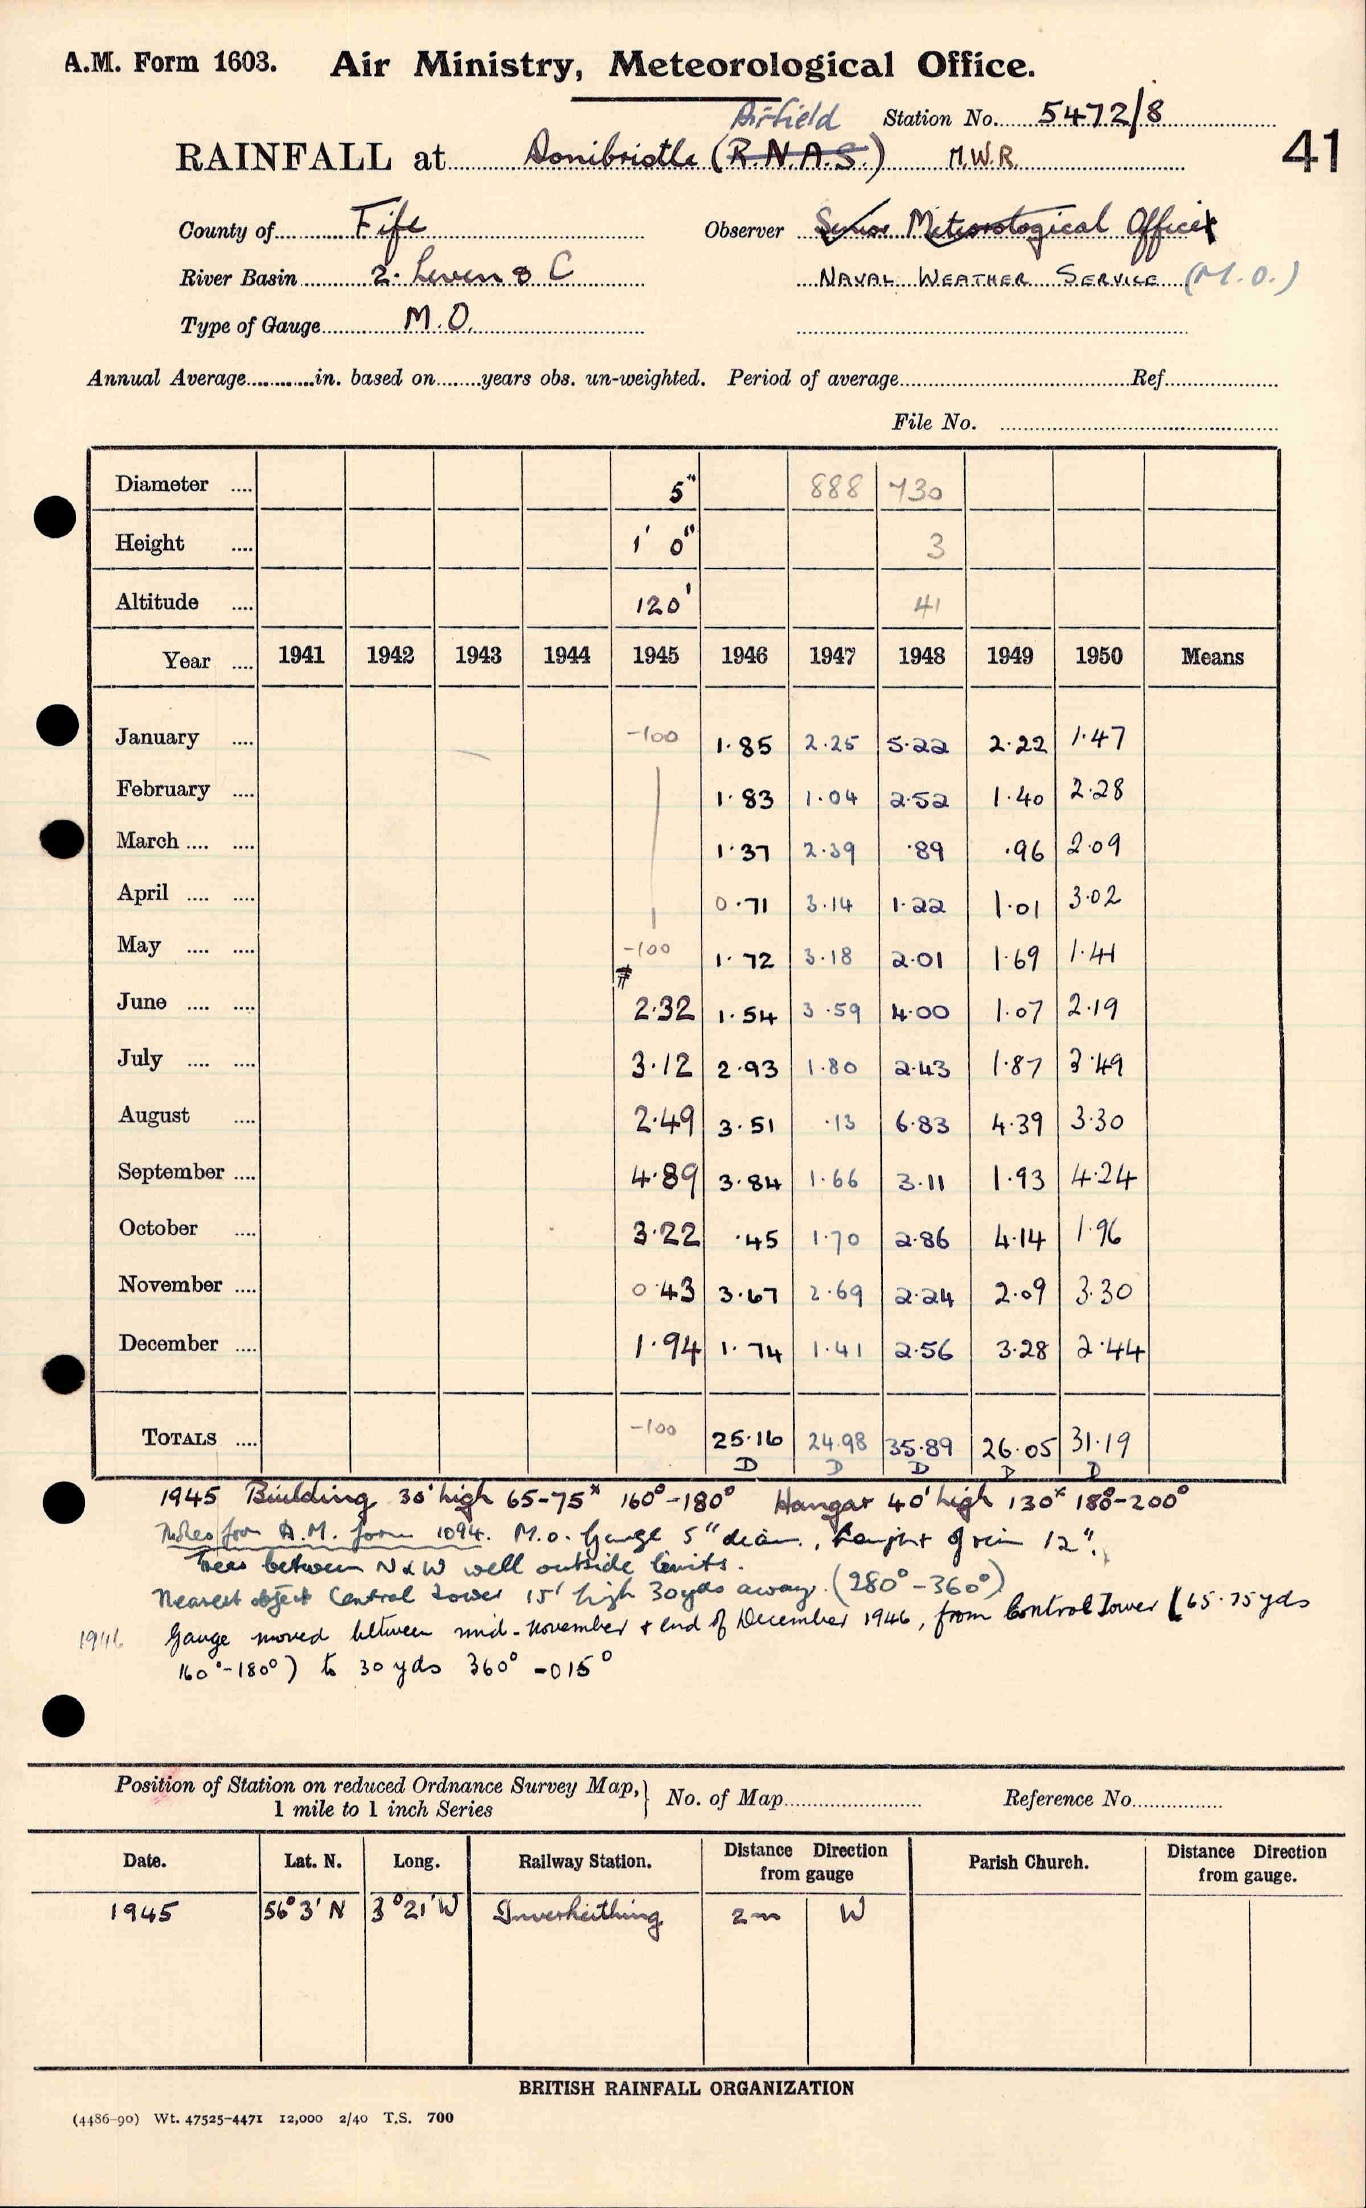 A.M. Form 1603. Air Ministry, Meteorological Office.
Airfield Station No. 5472/8
RAINFALL at Donibristle (R.N.A.S.) M.W.R. 41
County of Fife Observer Senior Meteorological Officer
River Basin 2. Leven & C NAVAL WEATHER SERVICE (M.O.)
Type of Gauge M.O.
Annual Average in. based on years obs. un-weighted. Period of average Ref.
File No.
Diameter 5" 888 730
Height 1' 0" 3
Altitude 120' 41
Year 1941 1942 1943 1944 1945 1946 1947 1948 1949 1950 Means
January -100 1.85 2.25 5.22 2.22 1.47
February 1.83 1.04 2.52 1.40 2.28
March 1.37 2.39 .89 .96 2.09
April 0.71 3.14 1.22 1.01 3.02
May -100 1.72 3.18 2.01 1.69 1.41
June # 2.32 1.54 3.59 4.00 1.07 2.19
July 3.12 2.93 1.80 2.43 1.87 3.49
August 2.49 3.51 .13 6.83 4.39 3.30
September 4.89 3.84 1.66 3.11 1.93 4.24
October 3.22 .45 1.70 2.86 4.14 1.96
November 0.43 3.67 2.69 2.24 2.09 3.30
December 1.94 1.74 1.41 2.56 3.28 2.44
TOTALS -100 25.16 24.98 35.89 26.05 31.19
D D D D D
1945 Building 30' high 65-75ˣ 160°-180° Hangar 40' high 130ˣ 180°-200°
Notes from A.M. form 1094. M.O. Gauge 5" diam., height of rim 12".
Trees between N & W well outside limits.
Nearest object Control Tower 15' high 30yds away. (280°-360°)
1946 Gauge moved between mid-november & end of December 1946, from Control Tower (65-75yds
160°-180°) to 30 yds 360°-015°
Position of Station on reduced Ordnance Survey Map, 1 mile to 1 inch Series No. of Map Reference No.
Date. Lat. N. Long. Railway Station. Distance Direction from gauge Parish Church. Distance Direction from gauge.
1945 56°3'N 3°21'W Inverkeithing 2m W
BRITISH RAINFALL ORGANIZATION
(4486-90) Wt. 47525-4471 12,000 2/40 T.S. 700